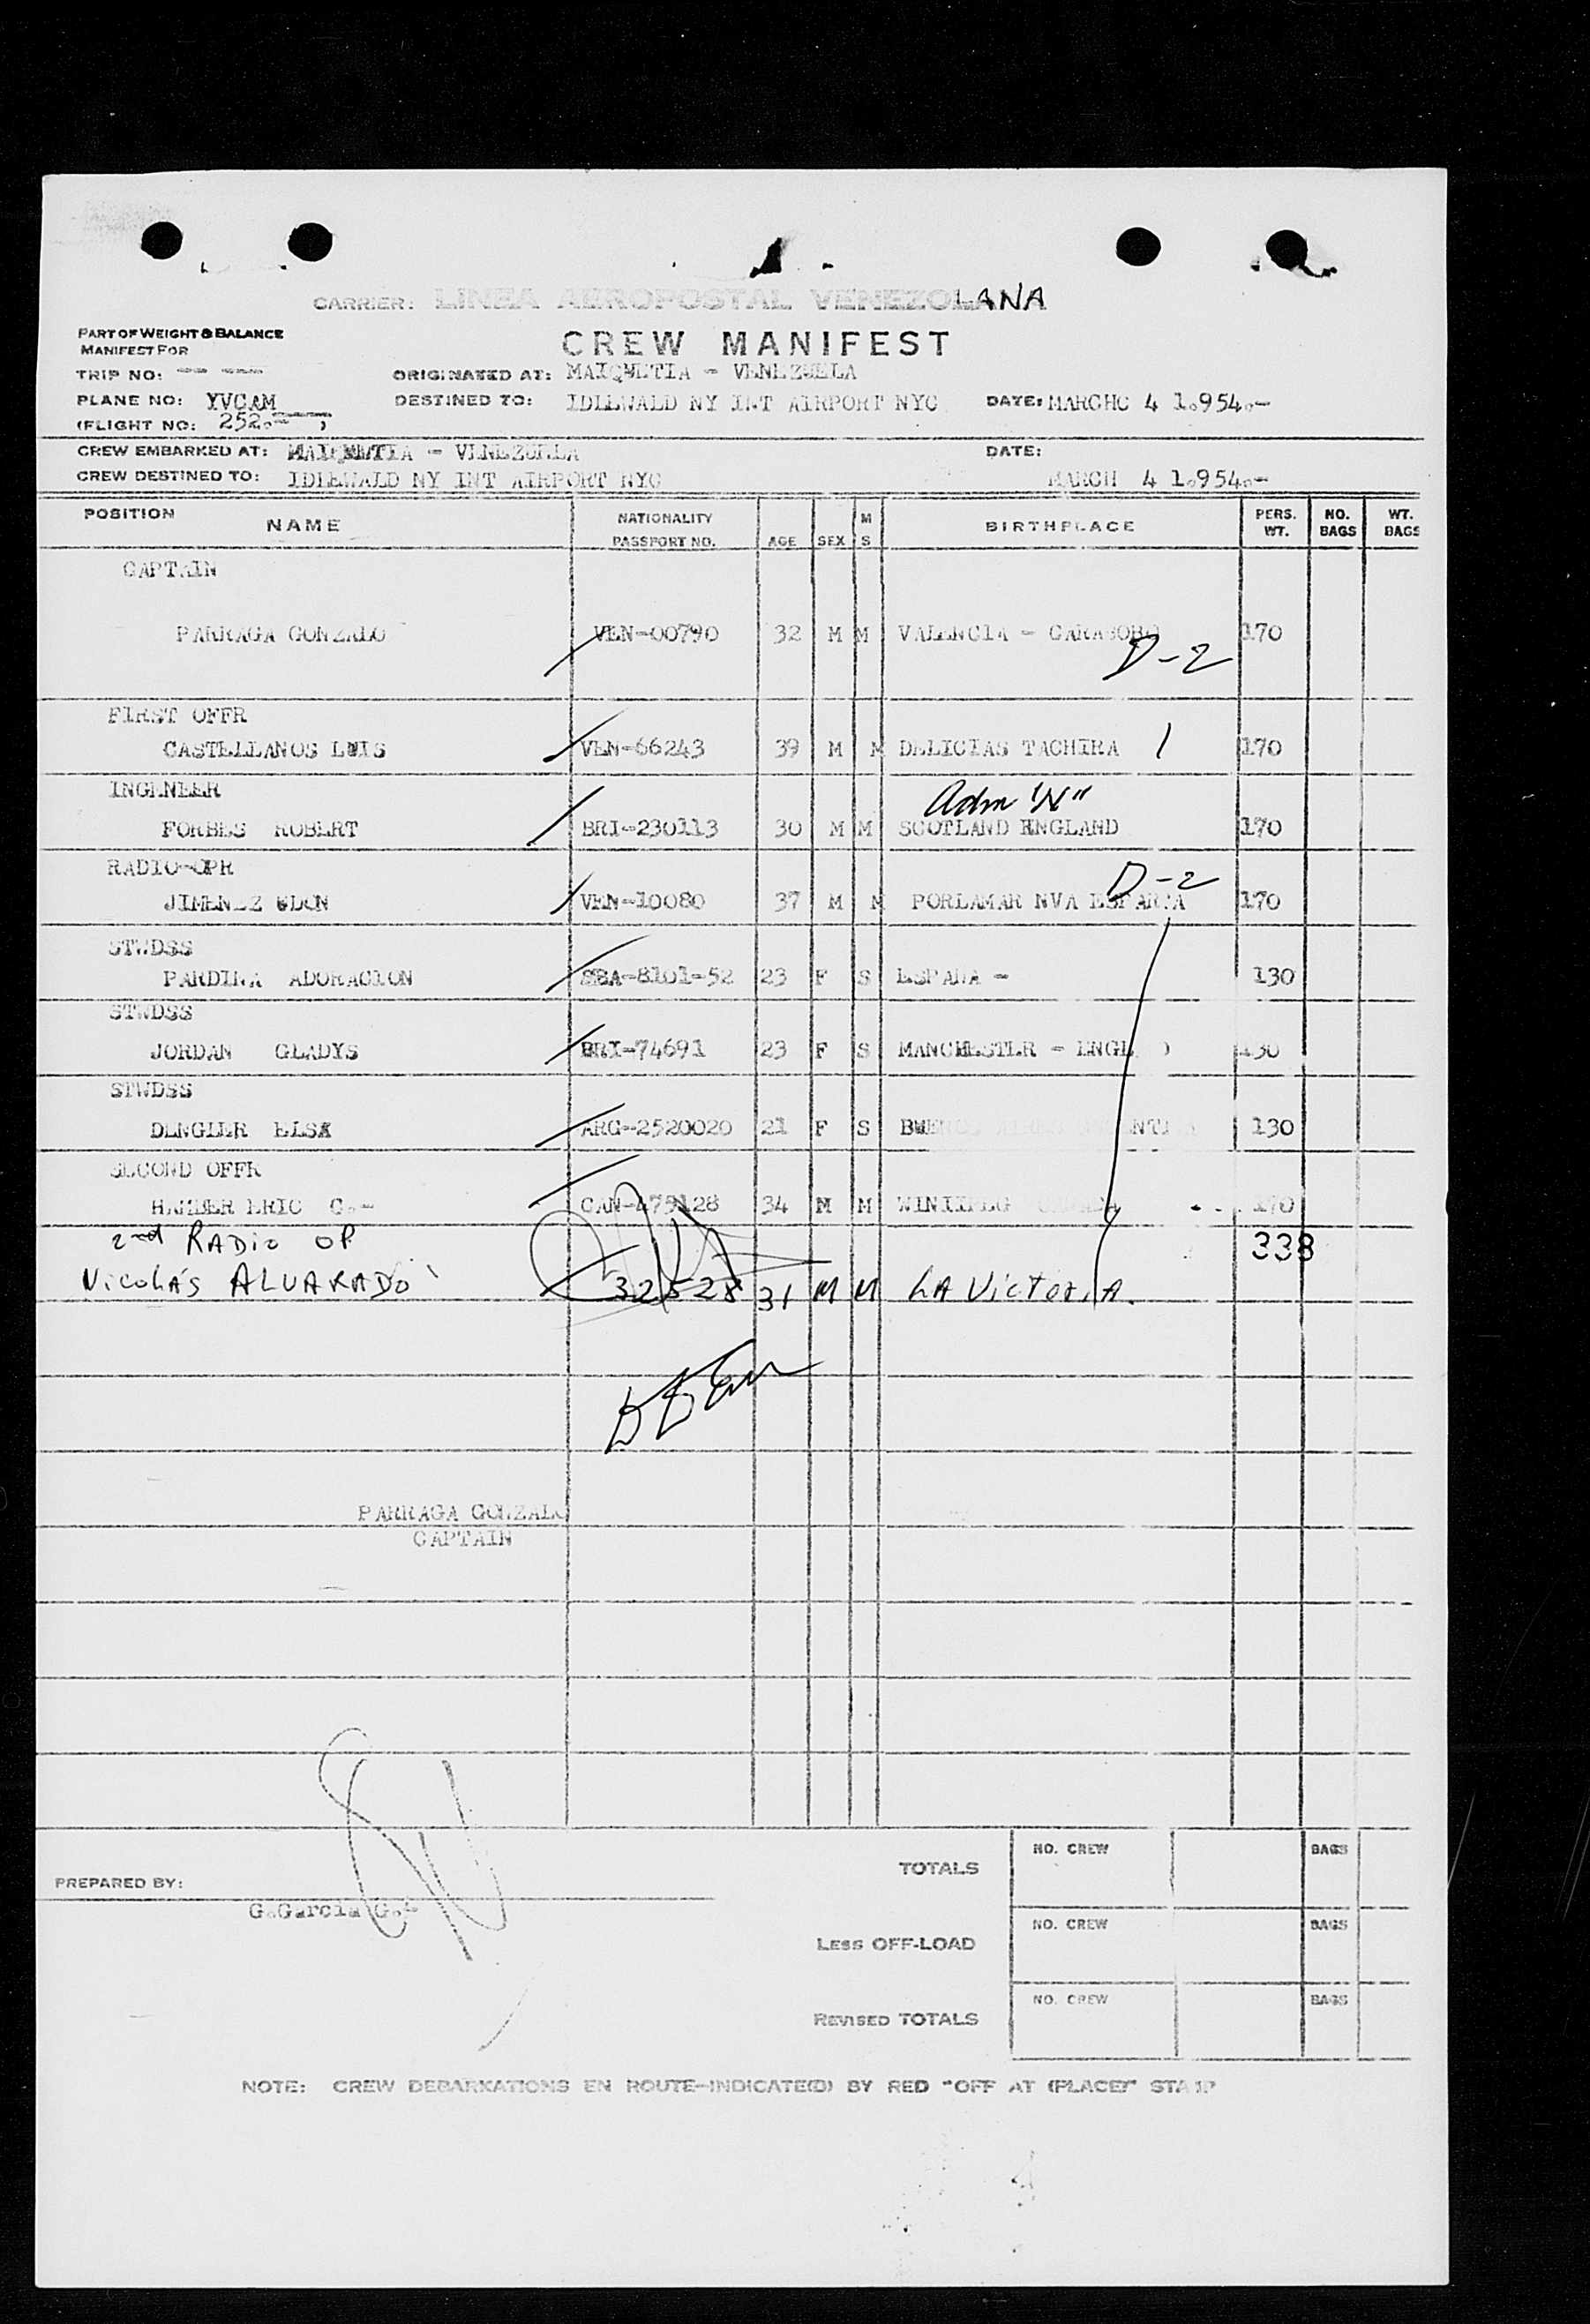 CARRIER: LINEA AEROPOSTAL VENEZOLANA
PART OF WEIGHT & BALANCE
MANIFEST FOR
CREW MANIFEST
TRIP NO: -- -- ORIGINATED AT: MAIQUETIA - VENEZUELA
PLANE NO: YVCAM DESTINED TO: IDLEWALD NY INT AIRPORT NYC DATE: MARCHC 4 1.954.-
(FLIGHT NO: 252.- )
CREW EMBARKED AT: MAIQUETIA - VENEZUELA DATE:
CREW DESTINED TO: IDLEWALD NY INT AIRPORT NYC MARCH 4 1.954.-
POSITION NAME NATIONALITY PASSPORT NO. AGE SEX M S BIRTHPLACE PERS. WT. NO. BAGS WT. BAGS
CAPTAIN
PARRAGA GONZALO VEN-00790 32 M M VALENCIA - CARABOBO 170
D-2
FIRST OFFR
CASTELLANOS LUIS VEN-66243 39 M M DELICIAS TACHIRA 170
INGENEER Adm "N"
FORBES ROBERT BRI-230113 30 M M SCOTLAND ENGLAND 170
RADIO-OPR D-2
JIMENEZ VEN-10080 37 M M PORLAMAR NVA ESPARTA 170
STWDSS
PARDINA ADORACION -8101-52 23 F S ESPAÑA - 130
STWDSS
JORDAN GLADYS BRI-74691 23 F S MANCHESTER - 130
STWDSS
DENGLER ELSA ARG-2520020 21 F S 130
SECOND OFFR
ERIC C.- CAN-475128 34 M M WINIIPEG CANADA 170
2nd RADIO OP 338
NICOLÁS ALVARADO 32528 31 M M LA VICTORIA.
PARRAGA GONZALO
CAPTAIN
PREPARED BY:
G.Garcia G.-
TOTALS NO. CREW BAGS
LESS OFF-LOAD NO. CREW BAGS
REVISED TOTALS NO. CREW BAGS
NOTE: CREW DEBARKATIONS EN ROUTE-INDICATE(D) BY RED "OFF AT (PLACE)" STAMP